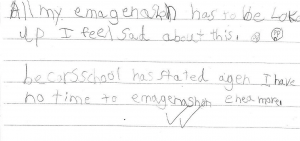 All my emagenashon has to be Lok
up I feel sad about this.
becarsschool has stated agen I have
no time to emagenashon eneamore.